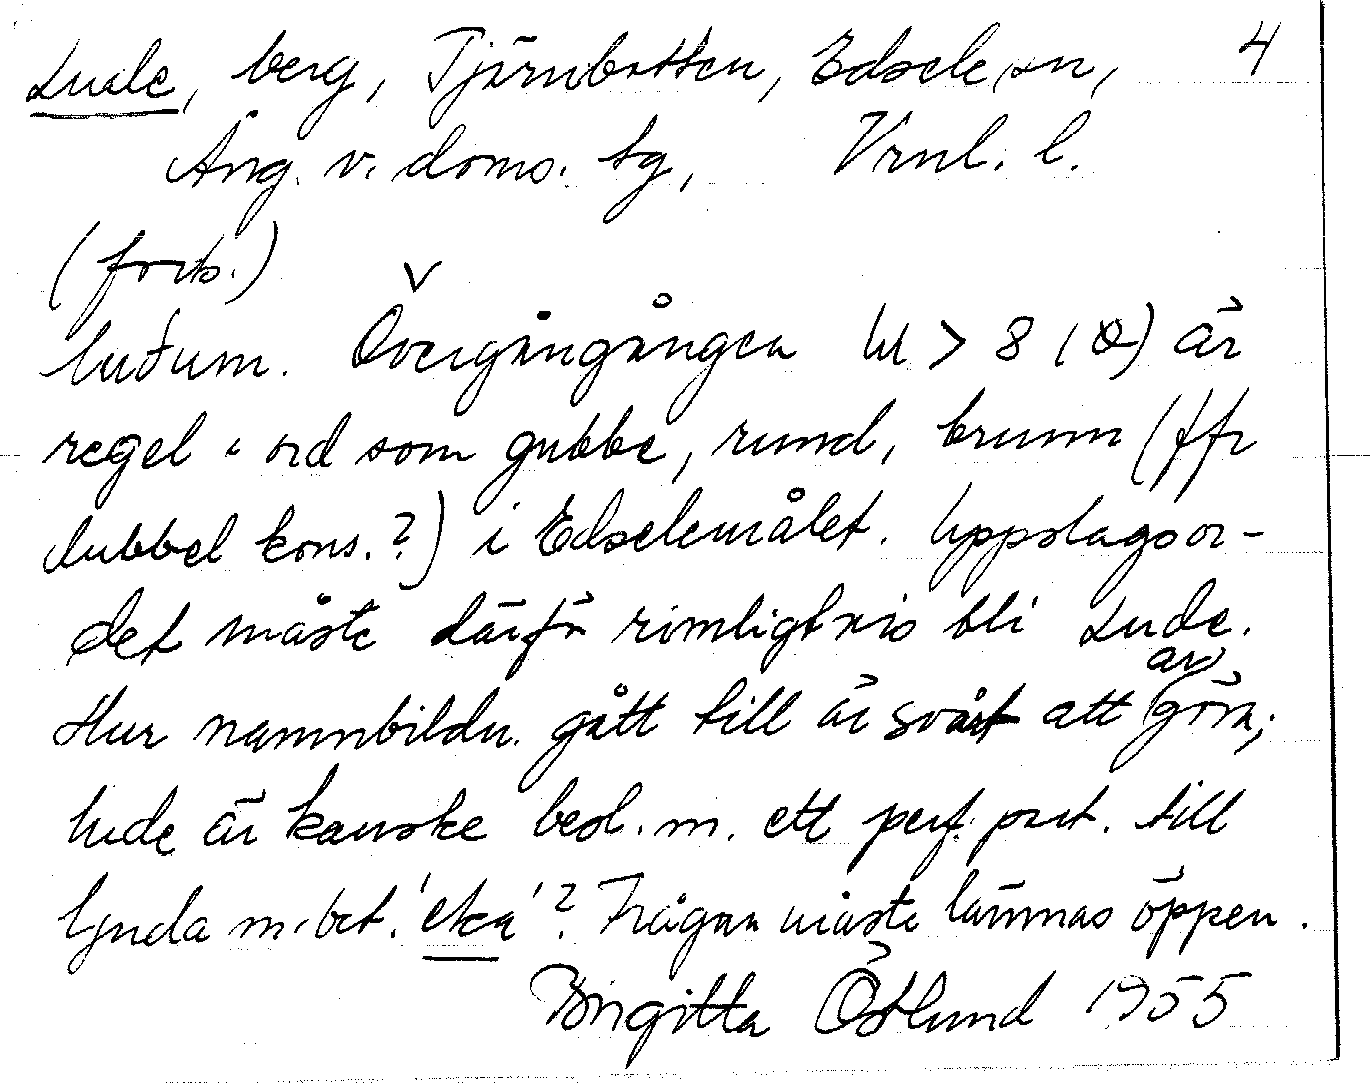 Lude, berg, Tjärnbotten, Edsele sn, 4
Ång. v. doms. tg, Vrnl. l.
(forts.)
luđum. Övergångången u > 8 (ɵ) är
regel i ord som gubbe, rund, brunn (ffr
dubbel kons.?) i Edselemålet. Uppslagsor-
det måste därför rimligtvis bli Lude.
Hur namnbildn. gått till är svårt att avgöra;
lude är kanske besl. m. ett perf. part. till
ljuda m. bet. 'eka'? Frågan måste lämnas öppen.
Birgitta Östlund 1955